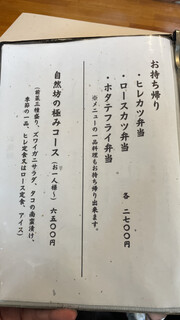 お持ち帰り
・ヒレカツ弁当
・ロースカツ弁当
・ホタテフライ弁当
各 二七〇〇円
※メニューの一品料理もお持ち帰り出来ます。
自然坊の極みコース(お一人様〜)
六五〇〇円
(前菜三種盛り、ズワイガニサラダ、タコの南蛮漬け、
季節の一品、ヒレ定食又はロース定食、アイス)